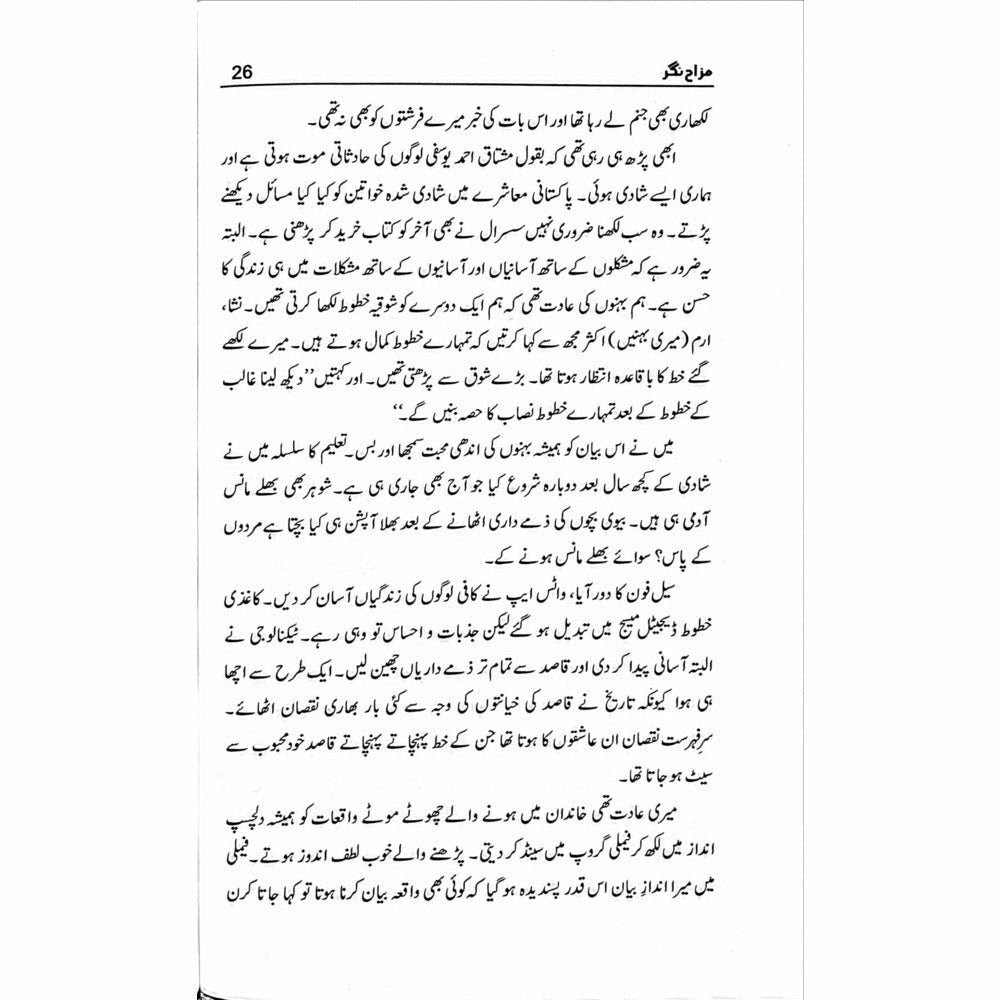 مزاح نگر 26
لکھاری بھی جنم لے رہا تھا اور اس بات کی خبر میرے فرشتوں کو بھی نہ تھی۔
ابھی پڑھ ہی رہی تھی کہ بقول مشتاق احمد یوسفی لوگوں کی حادثاتی موت ہوتی ہے اور
ہماری ایسے شادی ہوئی۔ پاکستانی معاشرے میں شادی شدہ خواتین کو کیا کیا مسائل دیکھنے
پڑتے۔ وہ سب لکھنا ضروری نہیں سسرال نے بھی آخر کو کتاب خرید کر پڑھنی ہے۔ البتہ
یہ ضرور ہے کہ مشکلوں کے ساتھ آسانیاں اور آسانیوں کے ساتھ مشکلات میں ہی زندگی کا
حسن ہے۔ ہم بہنوں کی عادت تھی کہ ہم ایک دوسرے کو شوقیہ خطوط لکھا کرتی تھیں۔ نشا،
ارم (میری بہنیں) اکثر مجھ سے کہا کرتیں کہ تمہارے خطوط کمال ہوتے ہیں۔ میرے لکھے
گئے خط کا باقاعدہ انتظار ہوتا تھا۔ بڑے شوق سے پڑھتی تھیں۔ اور کہتیں ’’دیکھ لینا غالب
کے خطوط کے بعد تمہارے خطوط نصاب کا حصہ بنیں گے۔‘‘
میں نے اس بیان کو ہمیشہ بہنوں کی اندھی محبت سمجھا اور بس۔ تعلیم کا سلسلہ میں نے
شادی کے کچھ سال بعد دوبارہ شروع کیا جو آج بھی جاری ہی ہے۔ شوہر بھی بھلے مانس
آدمی ہی ہیں۔ بیوی بچوں کی ذمے داری اٹھانے کے بعد بھلا آپشن ہی کیا بچتا ہے مردوں
کے پاس؟ سوائے بھلے مانس ہونے کے۔
سیل فون کا دور آیا، واٹس ایپ نے کافی لوگوں کی زندگیاں آسان کر دیں۔ کاغذی
خطوط ڈیجیٹل میسج میں تبدیل ہو گئے لیکن جذبات و احساس تو وہی رہے۔ ٹیکنالوجی نے
البتہ آسانی پیدا کر دی اور قاصد سے تمام تر ذمے داریاں چھین لیں۔ ایک طرح سے اچھا
ہی ہوا کیونکہ تاریخ نے قاصد کی خیانتوں کی وجہ سے کئی بار بھاری نقصان اٹھائے۔
سرِفہرست نقصان ان عاشقوں کا ہوتا تھا جن کے خط پہنچاتے پہنچاتے قاصد خود محبوب سے
سیٹ ہو جاتا تھا۔
میری عادت تھی خاندان میں ہونے والے چھوٹے موٹے واقعات کو ہمیشہ دلچسپ
انداز میں لکھ کر فیملی گروپ میں سینڈ کر دیتی۔ پڑھنے والے خوب لطف اندوز ہوتے۔ فیملی
میں میرا اندازِ بیان اس قدر پسندیدہ ہو گیا کہ کوئی بھی واقعہ بیان کرنا ہوتا تو کہا جاتا کرن